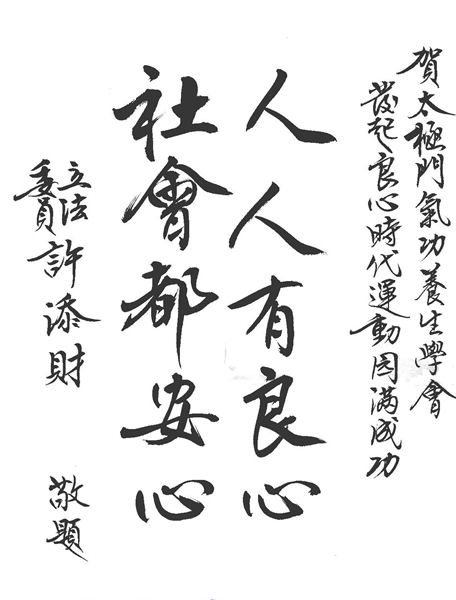 賀太極門氣功養生學會
發起良心時代運動圆滿成功
人人有良心
社會都安心
立法委員許添財
敬題